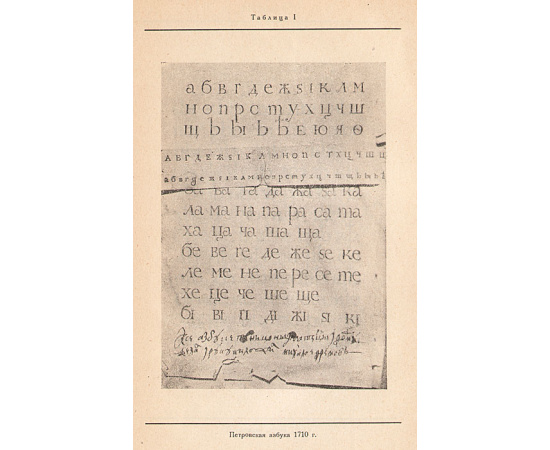 Таблица I
а б в г д е ж ѕ і к л м
н о п р с т у х ц ч ш
щ ь ы ъ ѣ е ю я ѳ
А Б В Г Д Е Ж Ѕ І К Л М Н О П С Т Х Ц Ч Ш Щ
а б в г д е ж ѕ і к л м н о п р с т у х ц ч ш щ ь ы ъ
ба ва га да жа ѕа ка
ла ма на па ра са та
ха ца ча ша ща
бе ве ге де же ѕе ке
ле ме не пе ре се те
хе це че ше ще
бі ві гі ді жі ѕі кі
Петровская азбука 1710 г.